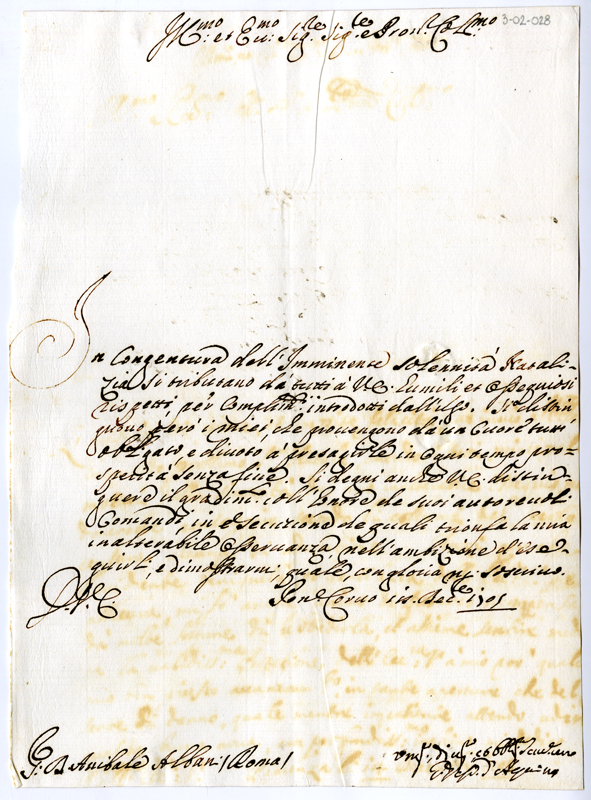 Ill.mo et Ecc.mo Sig.re Sig.re e Pron. Col.mo
3-02-028
In Congentura dell'Imminente solennità Natali-
zia si tributano da tutti à V.E. humili et osseguiosi
rispetti, per Complim.ti introdotti dall'uso. Si distin
guono però i miei, che provengono da un Cuore tutt'
oblig̃ato, e divoto à presagirle in ogni tempo pro-
sperità senza fine. Si degni anche V.E. distin-
guere il gradim.to coll'honore de suoi autorevoli
Comandi, in esecuzione de quali trionfa la mia
inalterabile osservanza nell'ambizione d'ese-
guirli, e dimostrarmi, quale, con gloria mi soscrivo.
D. V. E. Corvo 1705
D. Anibale Albani (Roma)
d'Aquino